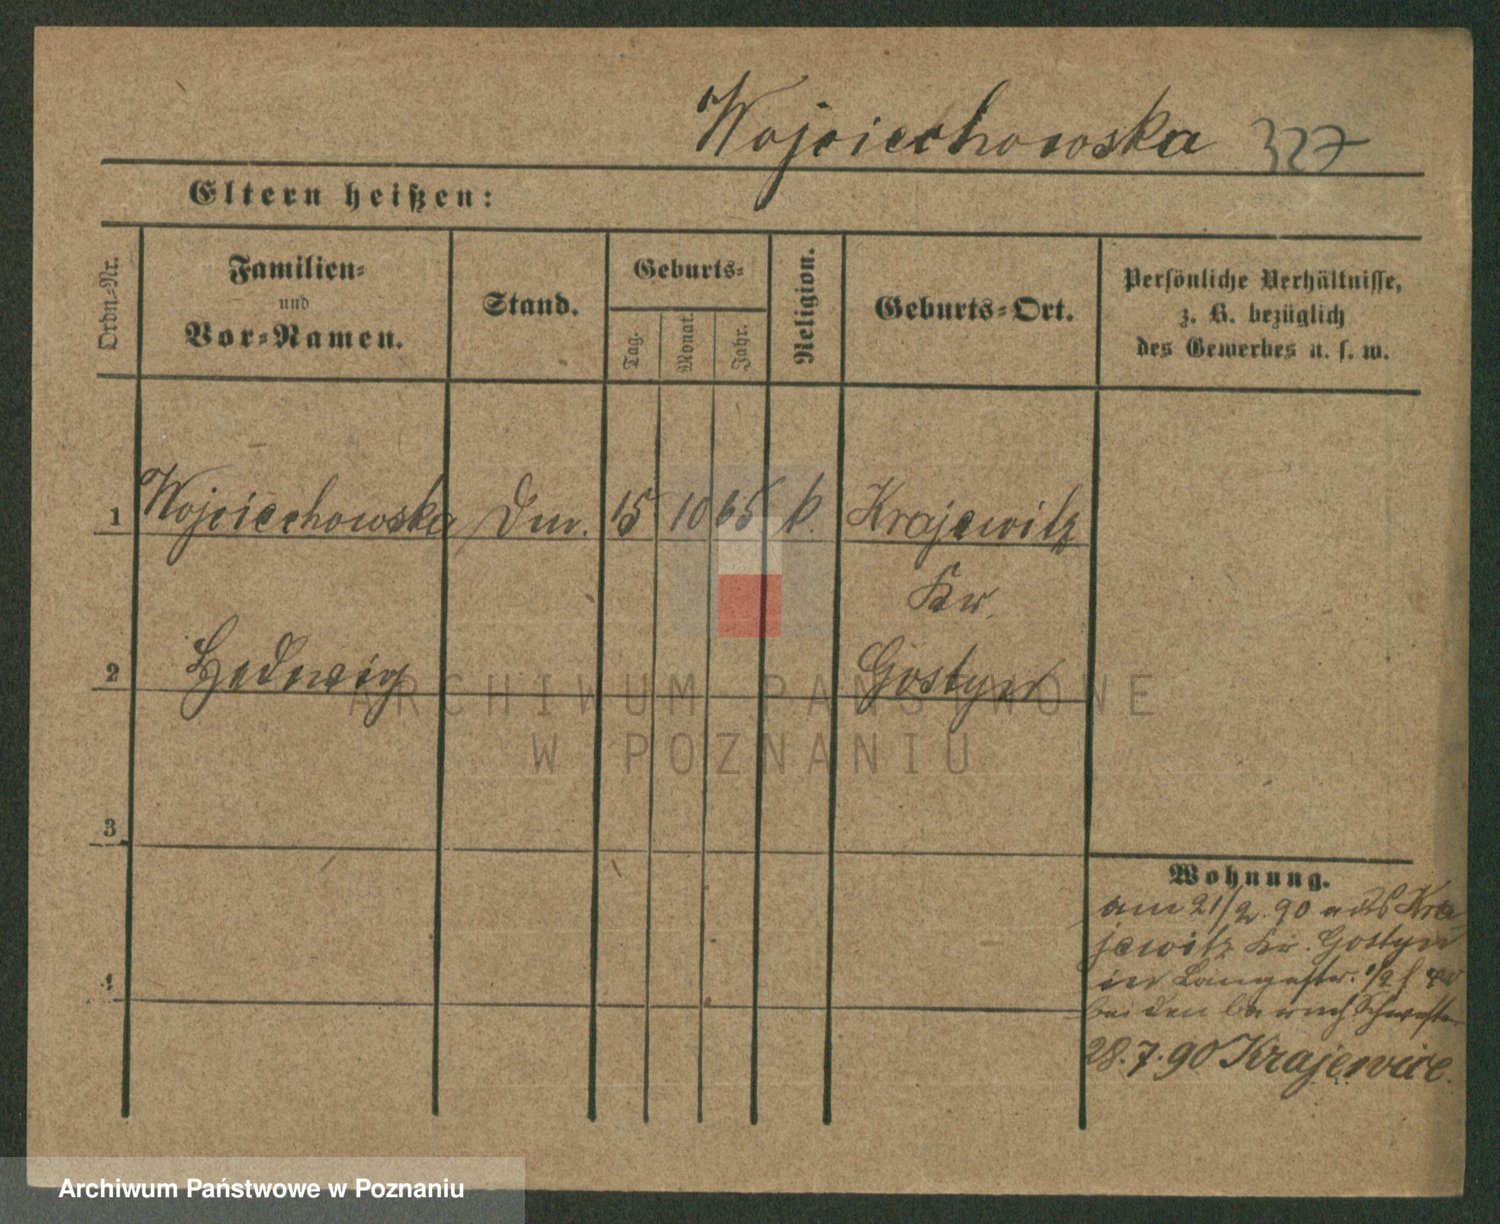 Wojciechowska 327
Eltern heißen:
Ordn.-Nr.
Familien-
und
Vor-Namen.
Stand.
Geburts-
Tag.
Monat.
Jahr.
Religion.
Geburts-Ort.
Persönliche Verhältnisse,
z. B. bezüglich
des Gewerbes u. s. w.
1 Wojciechowska 15 10 65 k. Krajewitz
Kr.
2 Hedwig Gostyn
3
4
Wohnung.
am 21/2. 90 aus Kra
jewitz Kr. Gostyn
in
bei den Schwestern
28.7.90 Krajewice.
ARCHIWUM PAŃSTWOWE
W POZNANIU
Archiwum Państwowe w Poznaniu